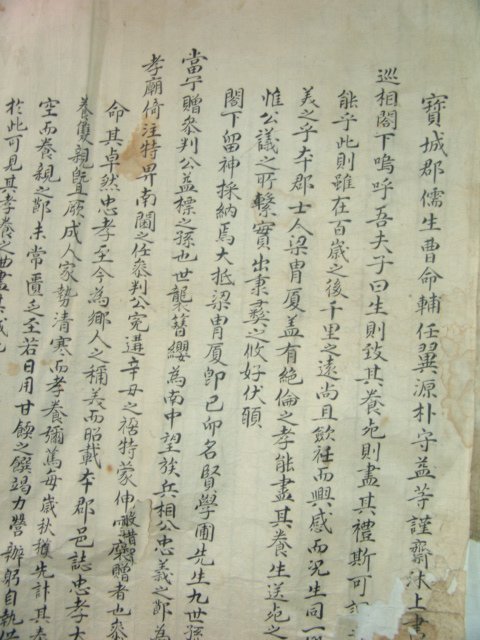 寶城郡儒生曺命輔任翼源朴守益等謹齋沐上書
巡相閤下嗚呼吾夫子曰生則致其養死則盡其禮斯可
能乎此則雖在百歲之後千里之遠尚且歛衽而興感而況生同一
美之乎本郡士人梁胄厦盖有絶倫之孝能盡其養生送死之
惟公議之所繫實出秉彛之攸好伏願
閤下留神採納焉大抵梁胄厦卽己卯名賢學圃先生九世孫
當宁贈叅判公益標之孫也世襲簪纓爲南中望族兵相公忠義之節爲
孝廟倚注特畀南閫之任叅判公寃遘辛丑之禍特蒙伸 贈者也叅
命其卓然忠孝至今爲鄉人之稱美而昭載本郡邑誌忠孝大
養雙親曁厥成人家勢清寒而孝養彌篤每歲秋穫先計其
空而養親之節未嘗匱乏至若日用甘饌之饌竭力營辦躬自執
於此可見其孝養之曲盡其誠也